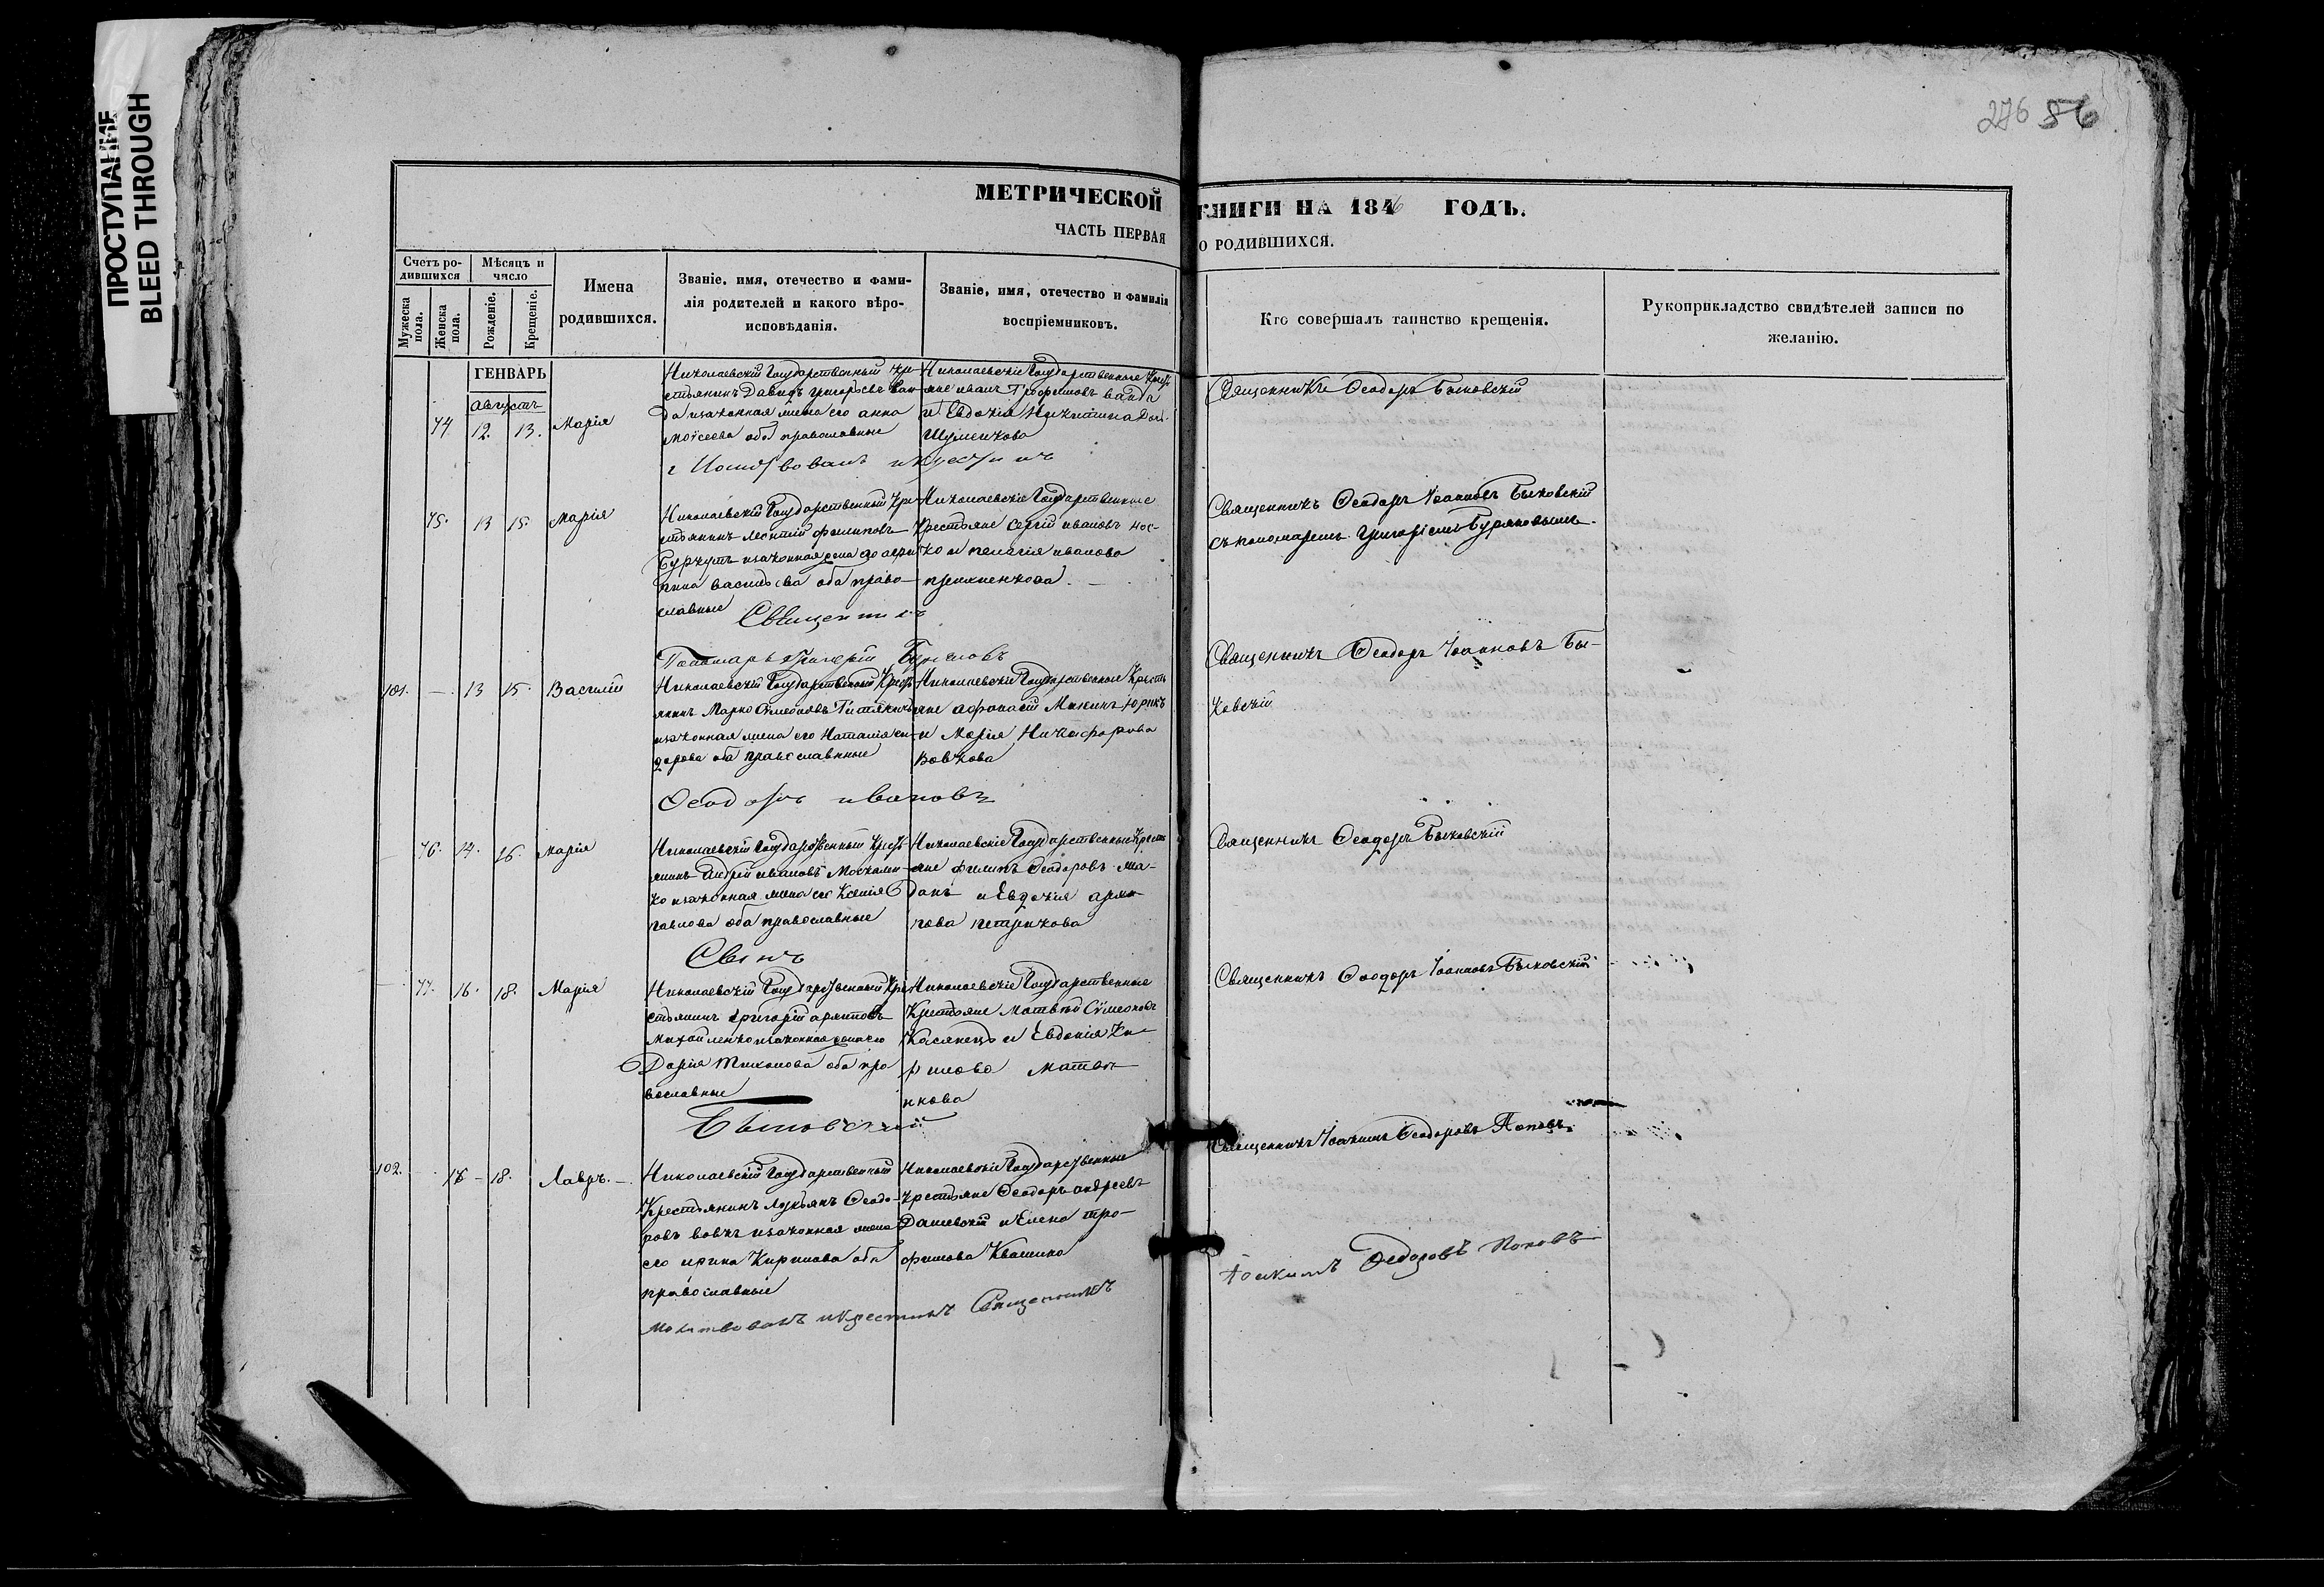 ПРОСТУПАНИЕ
BLEED THROUGH
276 86
МЕТРИЧЕСКОЙ КНИГИ НА 1846 ГОДЪ.
ЧАСТЬ ПЕРВАЯ О РОДИВШИХСЯ.
Счетъ ро-
дившихся
Мѣсяцъ и
число
Мужеска
пола.
Женска
пола.
Рожденіе.
Крещеніе.
Имена
родившихся.
Званіе, имя, отечество и фами-
лія родителей и какого вѣро-
исповѣданія.
Званіе, имя, отечество и фамилія
воспріемниковъ.
Кто совершалъ таинство крещенія.
Рукоприкладство свидѣтелей записи по
желанію.
ГЕНВАРЬ
августъ
74 12. 13. Марія
Николаевскій Государственный кре-
стьянинъ Давидъ Григорьевъ
да изаконная жена его анна
Моѵсеева оба православные
Николаевскіе Государственные Крест
яне иванъ Трофимовъ
и Евдокія Никитина
Шуменкова
Священникъ Ѳеодоръ Быковскій
и крестилъ
75. 13 15. Марія
Николаевскій Государственный Кре-
стьянинъ Леонтій филиповъ
Буркутъ изаконная жена его
васильева оба право-
славные
Николаевскіе Государственные
Крестьяне Сергій ивановъ Нос-
ко и пелагія иванова
Священникъ Ѳеодоръ Іоанновъ Быковскій
съ пономаремъ Григоріемъ Буряковымъ.
Священникъ
Пономарь Григорій
101. — 13 15. Василій
Николаевскій Государственный Крест
янинъ Марко
изаконная жена его Наталія си-
дорова оба православные
Николаевскіе Государственные Кресть
яне Афонасій Мининъ Юрикъ
и Марія Никифорова
Вовкова
Священникъ Ѳеодоръ Іоанновъ Бы-
ковскій
Ѳеодоръ ивановъ
76. 14. 16. Марія
Николаевскій Государственный Крест-
янинъ Андрей ивановъ Москален
ко изаконная жена его Ксенія
павлова оба православные
Николаевскіе Государственные Кресть
яне Филипъ Ѳеодоровъ ма-
данъ и Евдокія
пова петрикова
Священникъ Ѳеодоръ Быковскій
77. 16. 18. Марія
Николаевскій Государственный Кре
стьянинъ Григорій
Михайленко изаконная жена его
Дарія Тихонова оба пра
вославные
Николаевскіе Государственные
Крестьяне Матвѣй Сѵмеоновъ
Касянецъ и Евдокія Ки-
рилова Матвѣ
нкова
Священникъ Ѳеодоръ Іоанновъ Быковскій
Быковскій
102. 16 - 18. Лавръ.
Николаевскій Государственный
Крестьянинъ Лукьянъ Ѳеодо-
ровъ вовкъ изаконная жена
его ирина Кирилова оба
православные
Николаевскіе Государственные
Крестьяне Ѳеодоръ андреевъ
Дашевскій и Елена тро-
фимова Квашина
Священникъ Іоакимъ Ѳеодоровъ Поповъ.
Молитвовалъ икрестилъ Священникъ
Іоакимъ Ѳедоровъ Поповъ